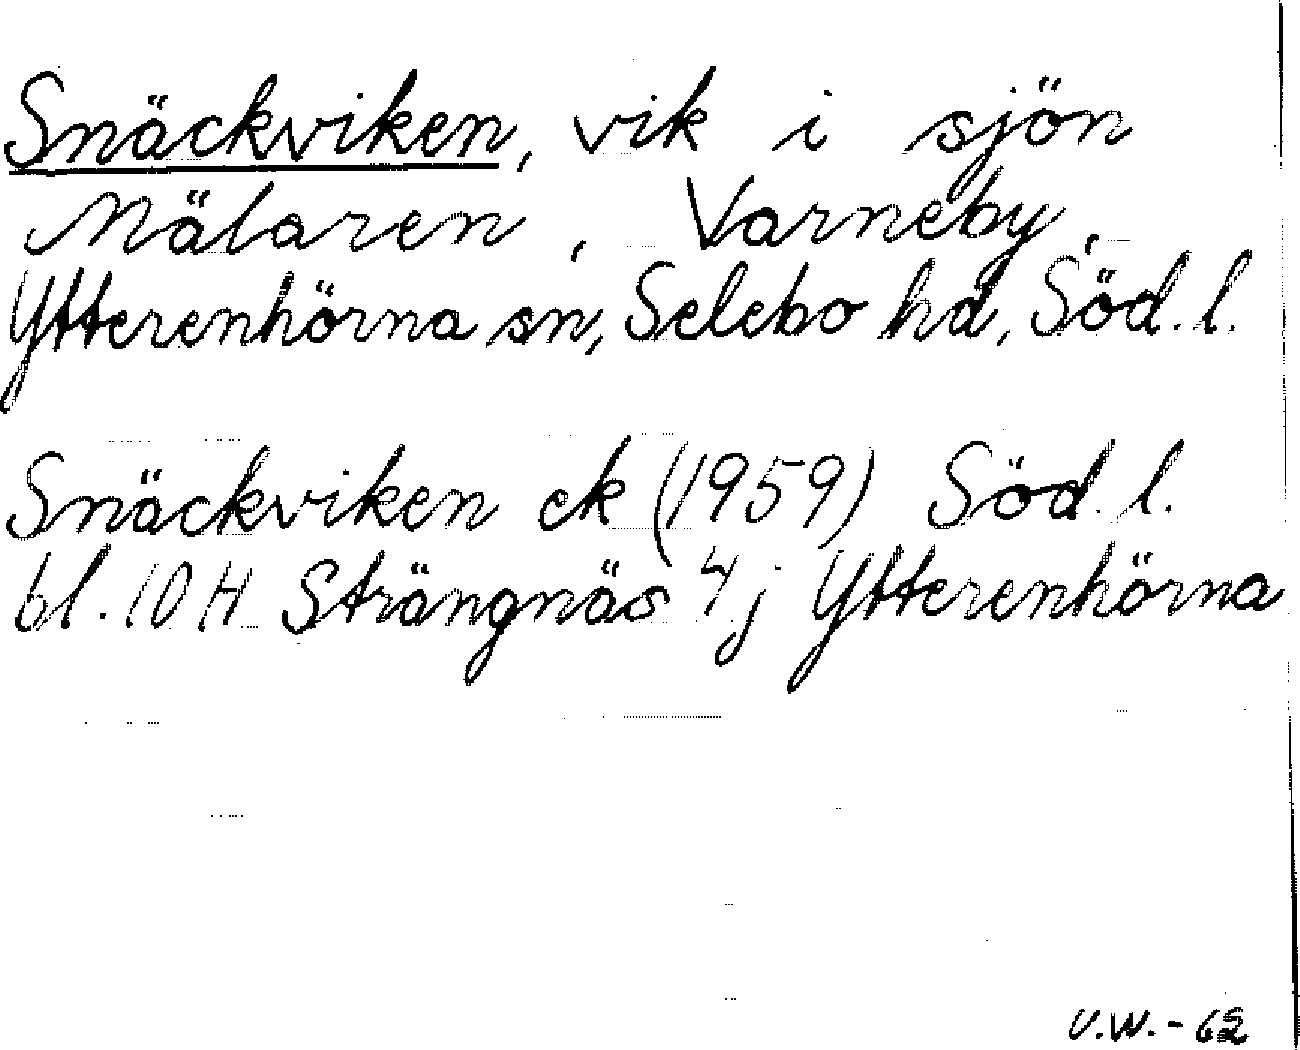 Snäckviken, vik i sjön
Mälaren, Varneby,
Ytterenhörna sn, Selebo hd, Söd. l.
Snäckviken ek (1959) Söd. l.
bl. 10 H Strängnäs 4 j Ytterenhörna
U.W. - 62